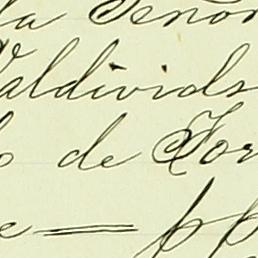 la Señor
Valdivids
o de Tor
e = pp